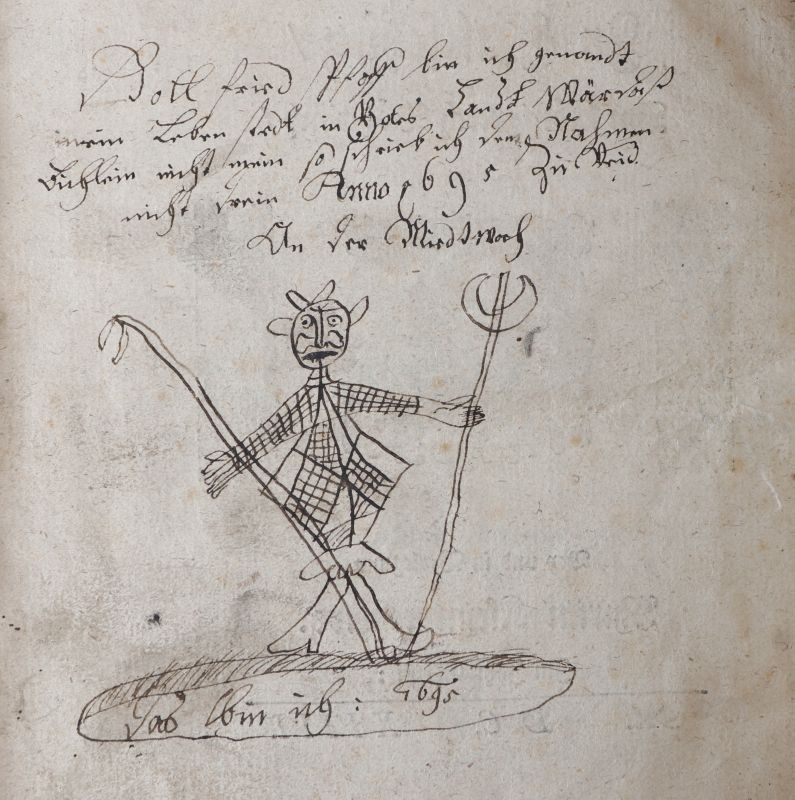 Gottfried bin ich genandt
mein Leben stedt in Gottes Handt Wär das
Bichlein nicht mein so schrieb ich den Nahmen
nicht drein Anno 1695 Zu
An der Miedtwoch
das bin ich: 1695